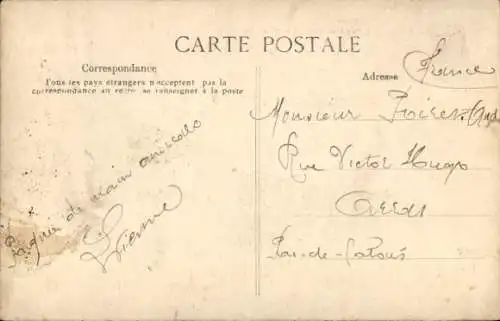 CARTE POSTALE
Correspondance
Tous les pays étrangers n'acceptent pas la
correspondance au recto, se renseigner à la poste
Adresse
France
Monsieur
Rue Victor Hugo
Pas-de-Calais
de main amicale
Etienne